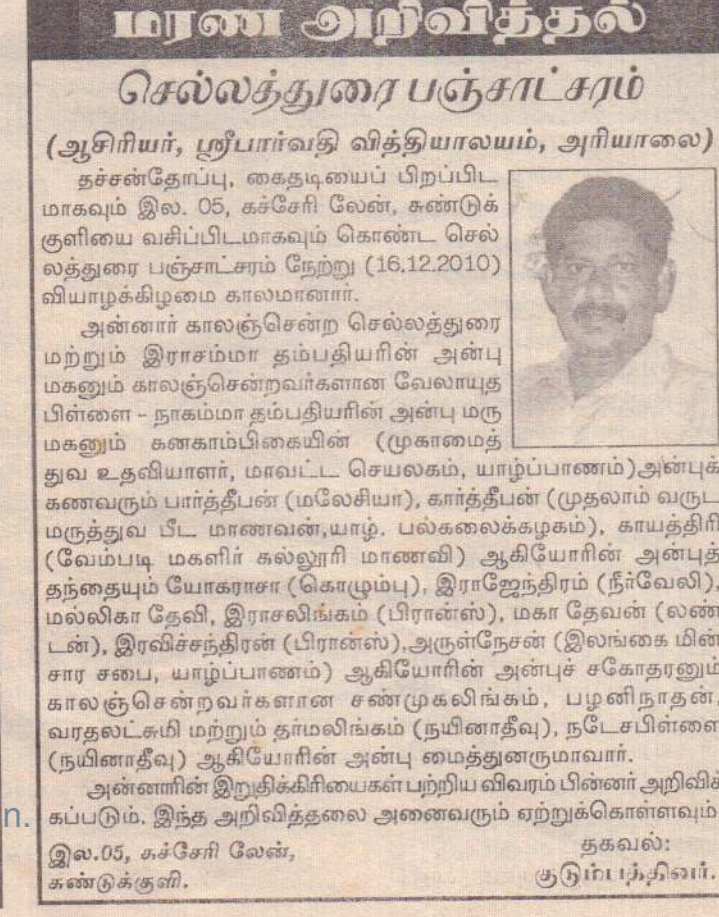 மரண அறிவித்தல்
செல்லத்துரை பஞ்சாட்சரம்
(ஆசிரியர், ஸ்ரீபார்வதி வித்தியாலயம், அரியாலை)
தச்சன்தோப்பு, கைதடியைப் பிறப்பிட
மாகவும் இல. 05, கச்சேரி லேன், சுண்டுக்
குளியை வசிப்பிடமாகவும் கொண்ட செல்
லத்துரை பஞ்சாட்சரம் நேற்று (16.12.2010)
வியாழக்கிழமை காலமானார்.
அன்னார் காலஞ்சென்ற செல்லத்துரை
மற்றும் இராசம்மா தம்பதியரின் அன்பு
மகனும் காலஞ்சென்றவர்களான வேலாயுத
பிள்ளை - நாகம்மா தம்பதியரின் அன்பு மரு
மகனும் கனகாம்பிகையின் (முகாமைத்
துவ உதவியாளர், மாவட்ட செயலகம், யாழ்ப்பாணம்)அன்புக்
கணவரும் பார்த்தீபன் (மலேசியா), கார்த்தீபன் (முதலாம் வருட
மருத்துவ பீட மாணவன்,யாழ். பல்கலைக்கழகம்), காயத்திரி
(வேம்படி மகளிர் கல்லூரி மாணவி) ஆகியோரின் அன்புத்
தந்தையும் யோகராசா (கொழும்பு), இராஜேந்திரம் (நீர்வேலி),
மல்லிகா தேவி, இராசலிங்கம் (பிரான்ஸ்), மகா தேவன் (லண்
டன்), இரவிச்சந்திரன் (பிரான்ஸ்),அருள்நேசன் (இலங்கை மின்
சார சபை, யாழ்ப்பாணம்) ஆகியோரின் அன்புச் சகோதரனும்
காலஞ்சென்றவர்களான சண்முகலிங்கம், பழனிநாதன்,
வரதலட்சுமி மற்றும் தர்மலிங்கம் (நயினாதீவு), நடேசபிள்ளை
(நயினாதீவு) ஆகியோரின் அன்பு மைத்துனருமாவார்.
அன்னாரின் இறுதிக்கிரியைகள் பற்றிய விவரம் பின்னர் அறிவிக்
n. கப்படும். இந்த அறிவித்தலை அனைவரும் ஏற்றுக்கொள்ளவும்
இல.05, கச்சேரி லேன், தகவல்:
சுண்டுக்குளி. குடும்பத்தினர்.